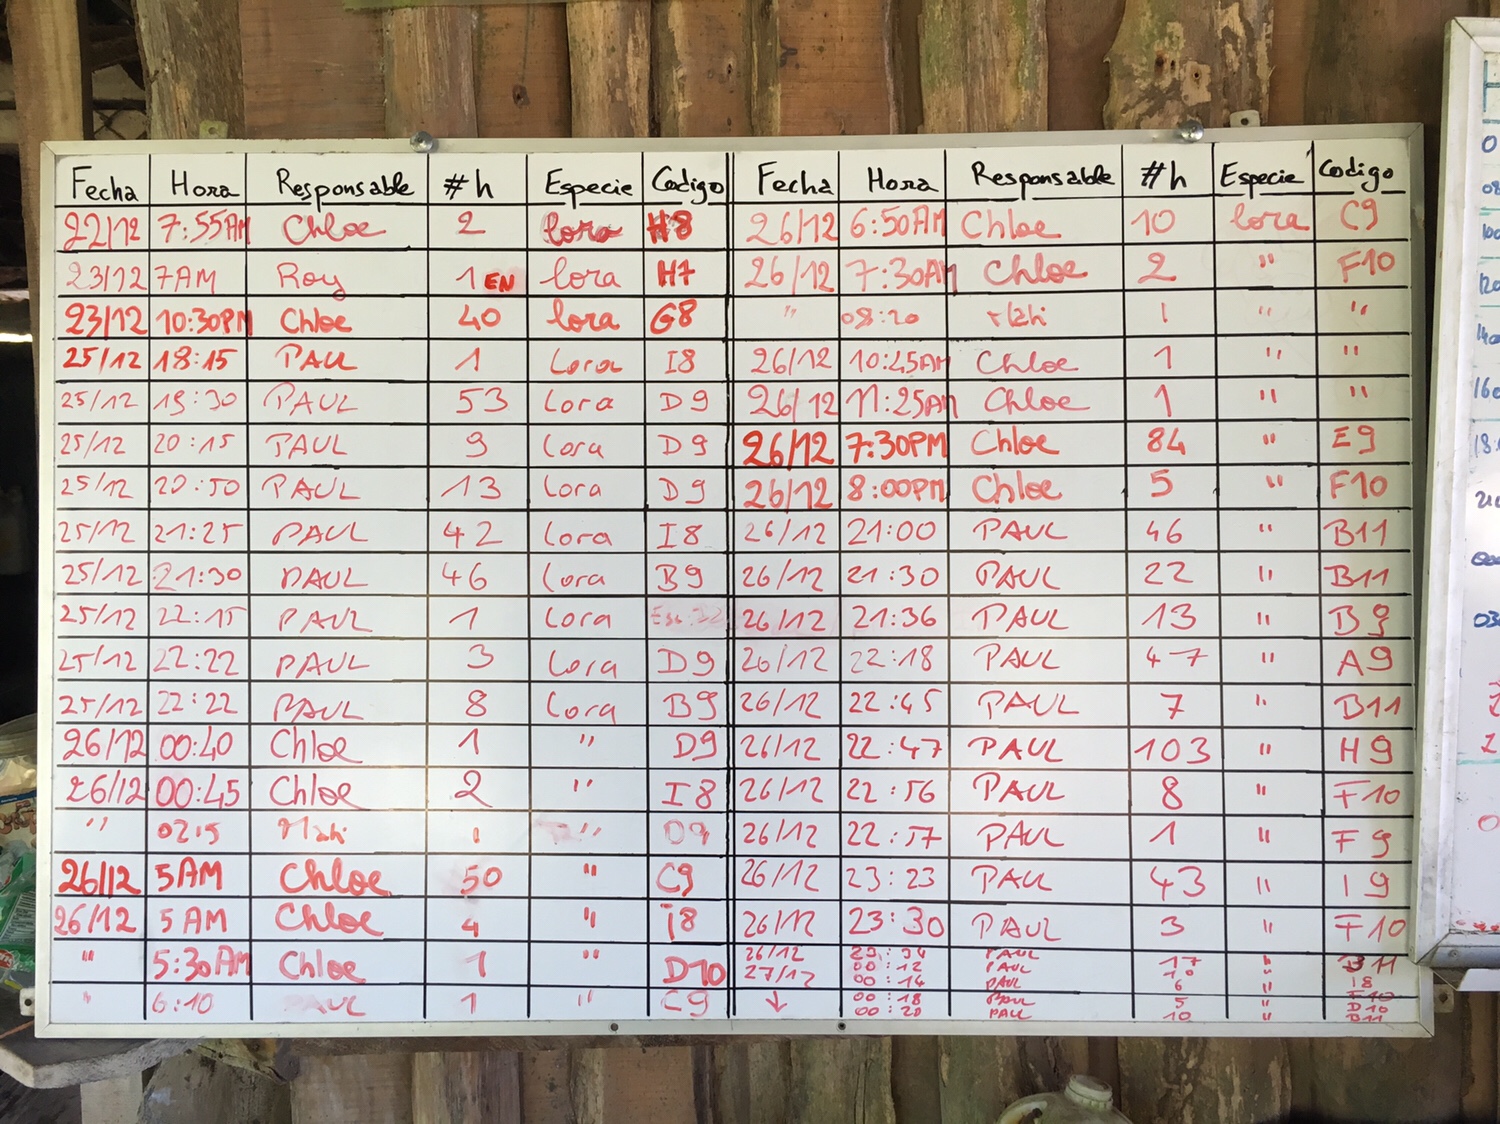 Fecha Hora Responsable #h Especie Codigo
22/12 7:55AM Chloe 2 lora H8
23/12 7AM Roy 1 EN lora H7
23/12 10:30PM Chloe 40 lora G8
25/12 18:15 PAUL 1 Lora I8
25/12 19:30 PAUL 53 Lora D9
25/12 20:15 PAUL 9 Lora D9
25/12 20:50 PAUL 13 Lora D9
25/12 21:25 PAUL 42 Lora I8
25/12 21:30 PAUL 46 Lora B9
25/12 22:15 PAUL 1 Lora
25/12 22:22 PAUL 3 Lora D9
25/12 22:22 PAUL 8 Lora B9
26/12 00:40 Chloe 1 " D9
26/12 00:45 Chloe 2 " I8
" 02:5 1 " D9
26/12 5AM Chloe 50 " C9
26/12 5AM Chloe 4 " I8
" 5:30AM Chloe 1 " D10
" 6:10 PAUL 1 " C9
Fecha Hora Responsable #h Especie Codigo
26/12 6:50AM Chloe 10 lora C9
26/12 7:30AM Chloe 2 " F10
" 08:20 1 " "
26/12 10:45AM Chloe 1 " "
26/12 11:25AM Chloe 1 " "
26/12 7:30PM Chloe 84 " E9
26/12 8:00PM Chloe 5 " F10
26/12 21:00 PAUL 46 " B11
26/12 21:30 PAUL 22 " B11
26/12 21:36 PAUL 13 " B9
26/12 22:18 PAUL 47 " A9
26/12 22:45 PAUL 7 " B11
26/12 22:47 PAUL 103 " H9
26/12 22:56 PAUL 8 " F10
26/12 22:57 PAUL 1 " F9
26/12 23:23 PAUL 43 " I9
26/12 23:30 PAUL 3 " F10
26/12 PAUL 17 " B11
27/12 00:12 PAUL " I8
00:14 PAUL 6 " F10
00:18 PAUL 5 D10
00:20 PAUL 10 " B11